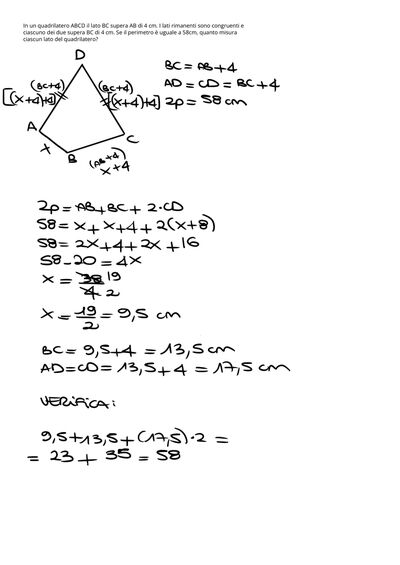 In un quadrilatero ABCD il lato BC supera AB di 4 cm. I lati rimanenti sono congruenti e
ciascuno dei due supera BC di 4 cm. Se il perimetro è uguale a 58cm, quanto misura
ciascun lato del quadrilatero?
D
BC = AB + 4
AD = CD = BC + 4
2p = 58 cm
(BC+4)
[(x+4)+4]
(BC+4)
[(x+4)+4]
A
x
B
C
(AB+4)
x+4
2p = AB + BC + 2·CD
58 = x + x + 4 + 2(x+8)
58 = 2x + 4 + 2x + 16
58 - 20 = 4x
x = 38 19
4 2
x = 19/2 = 9,5 cm
BC = 9,5 + 4 = 13,5 cm
AD = CD = 13,5 + 4 = 17,5 cm
VERIFICA:
9,5 + 13,5 + (17,5)·2 =
= 23 + 35 = 58